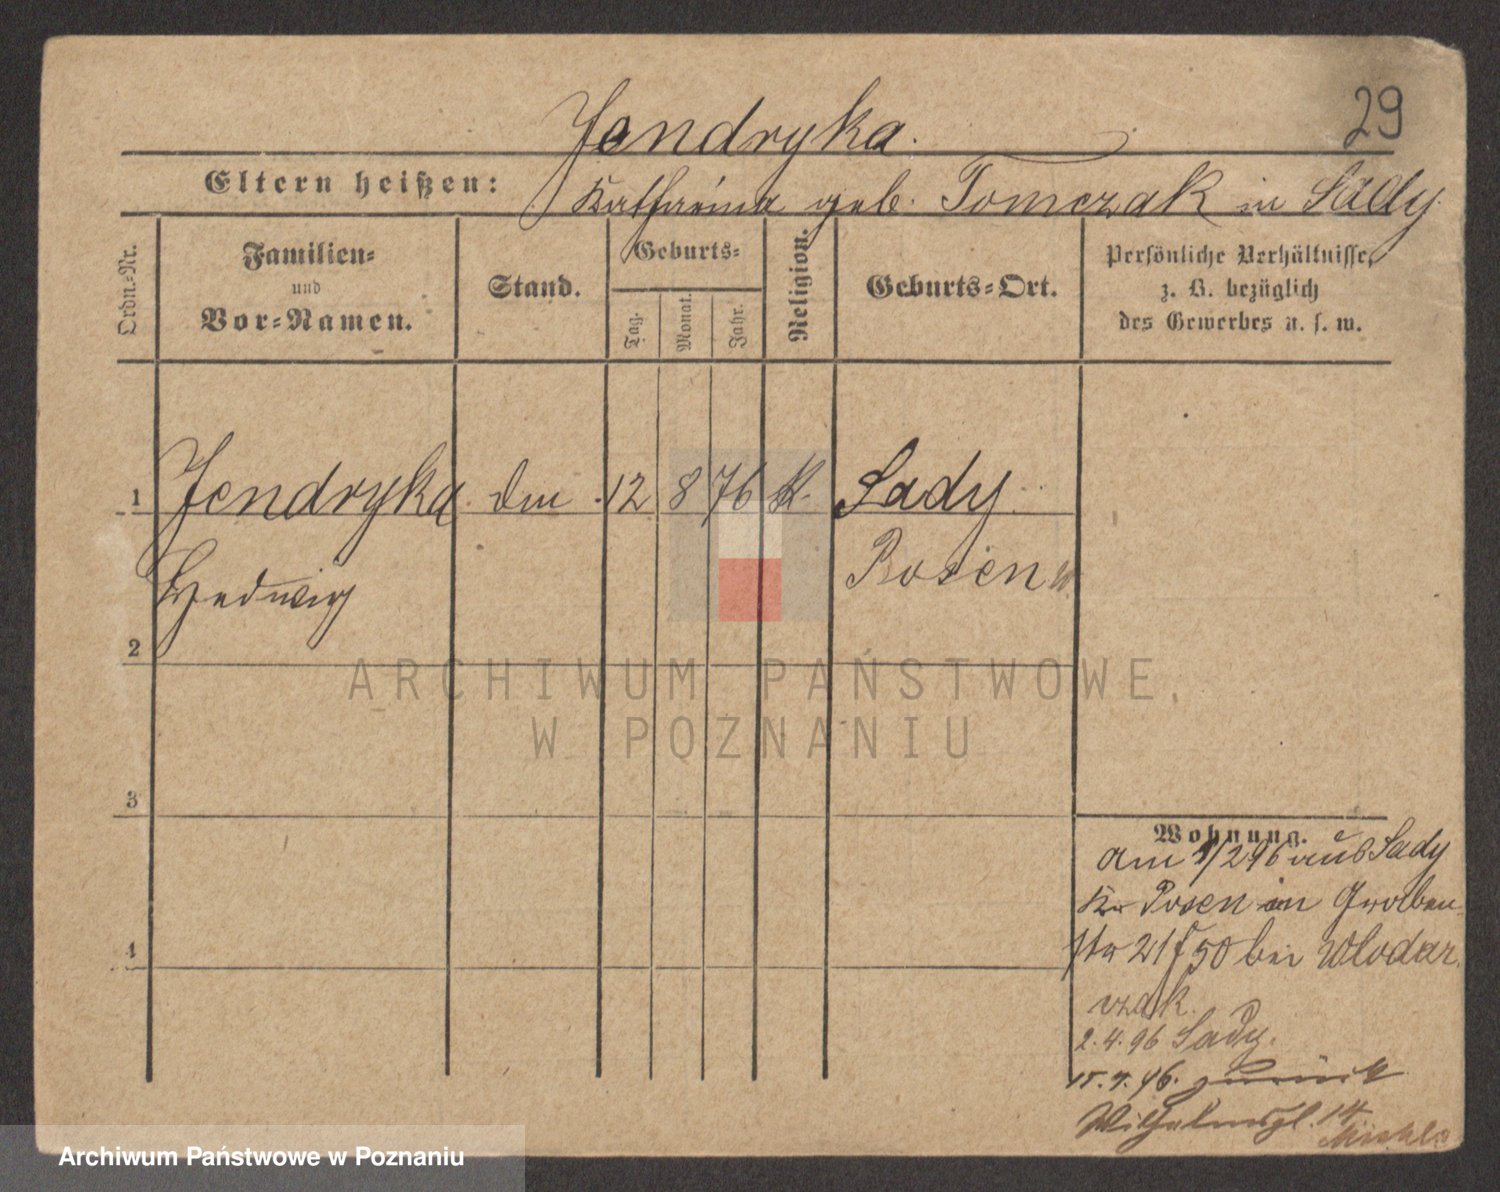 29
Jendryka.
Eltern heißen: Katharina geb. Tomczak in Sady.
Ordn.-Nr.
Familien-
und
Vor-Namen.
Stand.
Geburts-
Tag.
Monat.
Jahr.
Religion.
Geburts-Ort.
Persönliche Verhältnisse,
z. B. bezüglich
des Gewerbes u. s. w.
1 Jendryka dm 12 8 76 K. Sady
Hedwig Posen W.
2
3
4
Wohnung.
am /2 96 aus Sady
Kr Posen in Graben
str 21 bei Wlodar
czak.
2.4.96 Sady.
96. zurück
Wilhelmspl. 14
ARCHIWUM PAŃSTWOWE
W POZNANIU
Archiwum Państwowe w Poznaniu